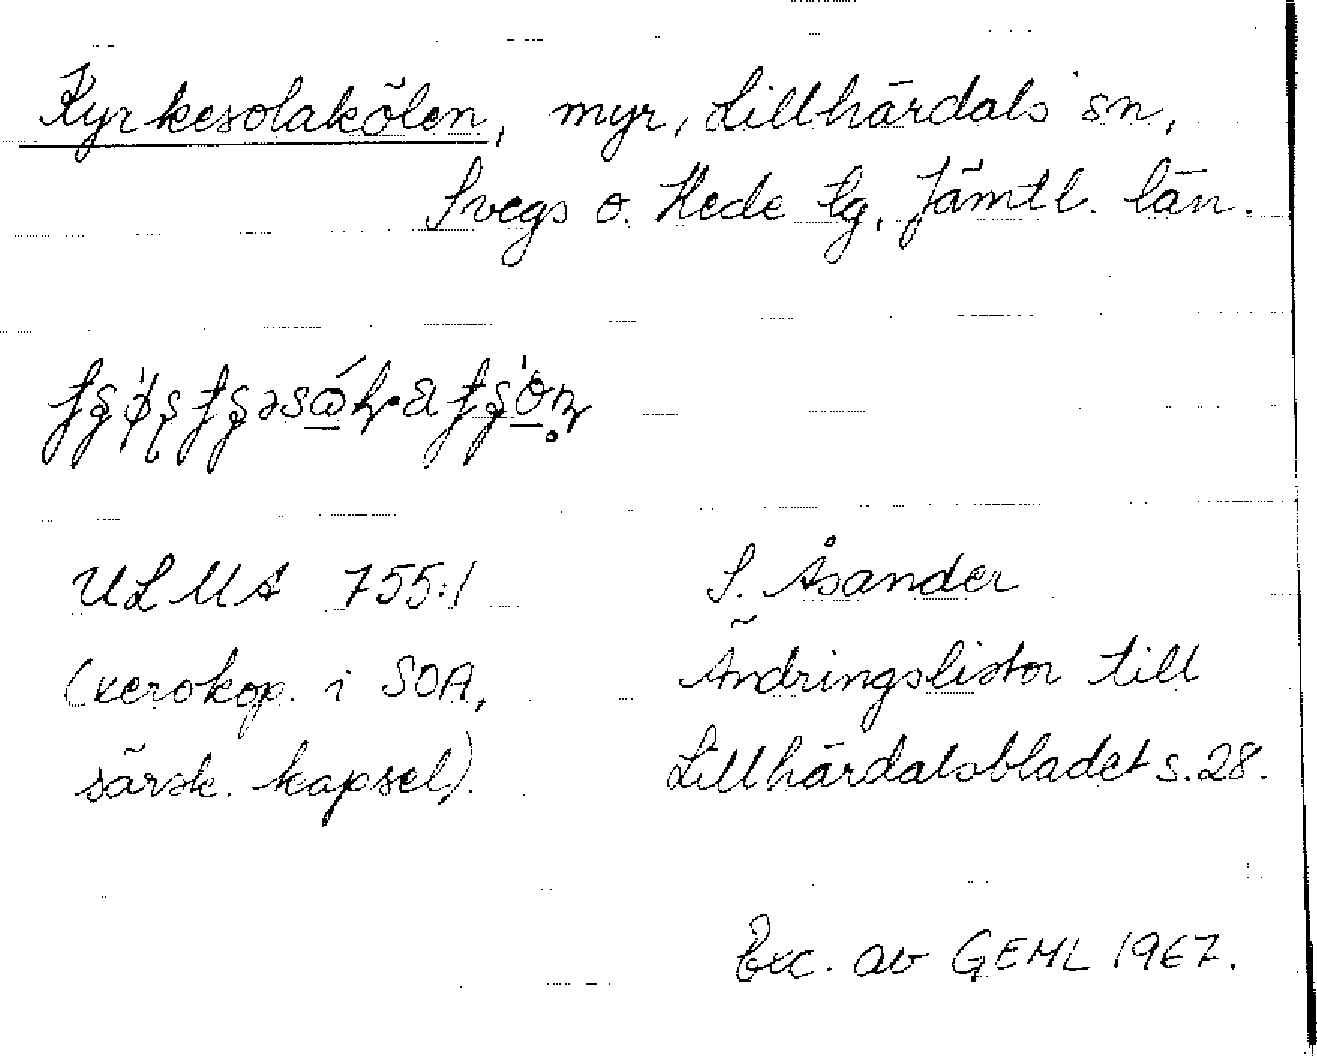 Kyrkesolakölen, myr, Lillhärdals sn,
Svegs o. Hede tg, Jämtl. län.
ULMA 755:1
S. Åsander
(xerokop. i SOA,
Ändringslistor till
särsk. kapsel).
Lillhärdalsbladet s. 28.
Exc. av GEML 1967.